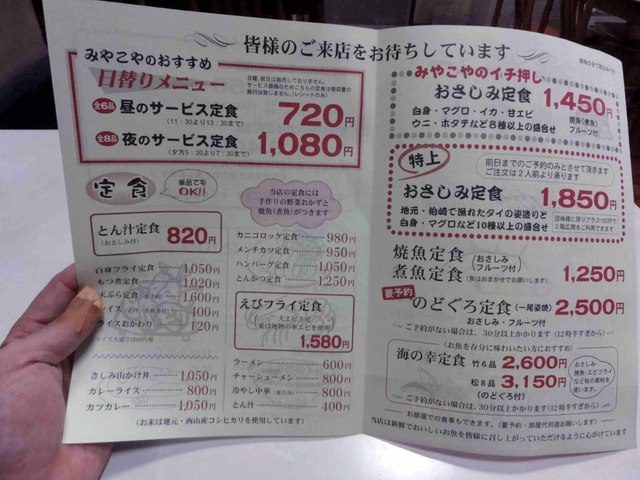 皆様のご来店をお待ちしています
みやこやのおすすめ
日替りメニュー
日曜、祝日は販売しておりません。
サービス価格のためこちらの定食は領収書の
発行は致しません。(レシートのみ)
全6品 昼のサービス定食 720円
(11:30より13:30まで)
全8品 夜のサービス定食 1,080円
(夕方5:30より7:30まで)
定食
単品でもOK!!
当店の定食には
手作りの野菜おかずと
焼魚(煮魚)がつきます
とん汁定食 820円
(おさしみ付)
白身フライ定食 1,050円
もつ煮定食 1,020円
天ぷら定食 要予約 1,600円
イス 400円
イスおかわり 120円
さしみ山かけ丼 1,050円
カレーライス 800円
カツカレー 1,050円
カニコロッケ定食 980円
メンチカツ定食 950円
ハンバーグ定食 1,050円
とんかつ定食 1,250円
えびフライ定食
大エビ3尾
夏は地物の車エビを使用
1,580円
ラーメン 600円
チャーシューメン 800円
冷やし中華(夏のみ) 800円
とん汁 400円
(お米は地元・西山産コシヒカリを使用しています)
価格は全て税込みです
みやこやのイチ押し
おさしみ定食 1,450円
白身・マグロ・イカ・甘エビ
ウニ・ホタテなど8種以上の盛合せ
焼魚(煮魚)
フルーツ付
特上
前日までのご予約のみとさせて頂きます
ご注文は2人前より承ります
おさしみ定食 1,850円
地元・柏崎で漁れたタイの姿造りと
白身・マグロなど10種以上の盛合せ
団体様に限りグラス150円で
2階広間をご利用できます
焼魚定食
煮魚定食
(おさしみ フルーツ付)
(魚はおまかせでお願いします)
1,250円
要予約
のどぐろ定食(一尾姿焼) 2,500円
おさしみ・フルーツ付
ご予約がない場合は、30分以上かかります(12時すぎから)
(お魚を存分に味わいたい方におすすめ)
海の幸定食 竹6品 2,600円
松8品 3,150円
(のどぐろ付)
おさしみ
焼魚・エビフライ
など旬の素材を
使います。
ご予約がない場合は、30分以上かかります(12時すぎから)
お部屋での食事もできます。(要予約・部屋代別途お願いします)
当店は新鮮でおいしいお魚を皆様に召し上がっていただけるように心がけています